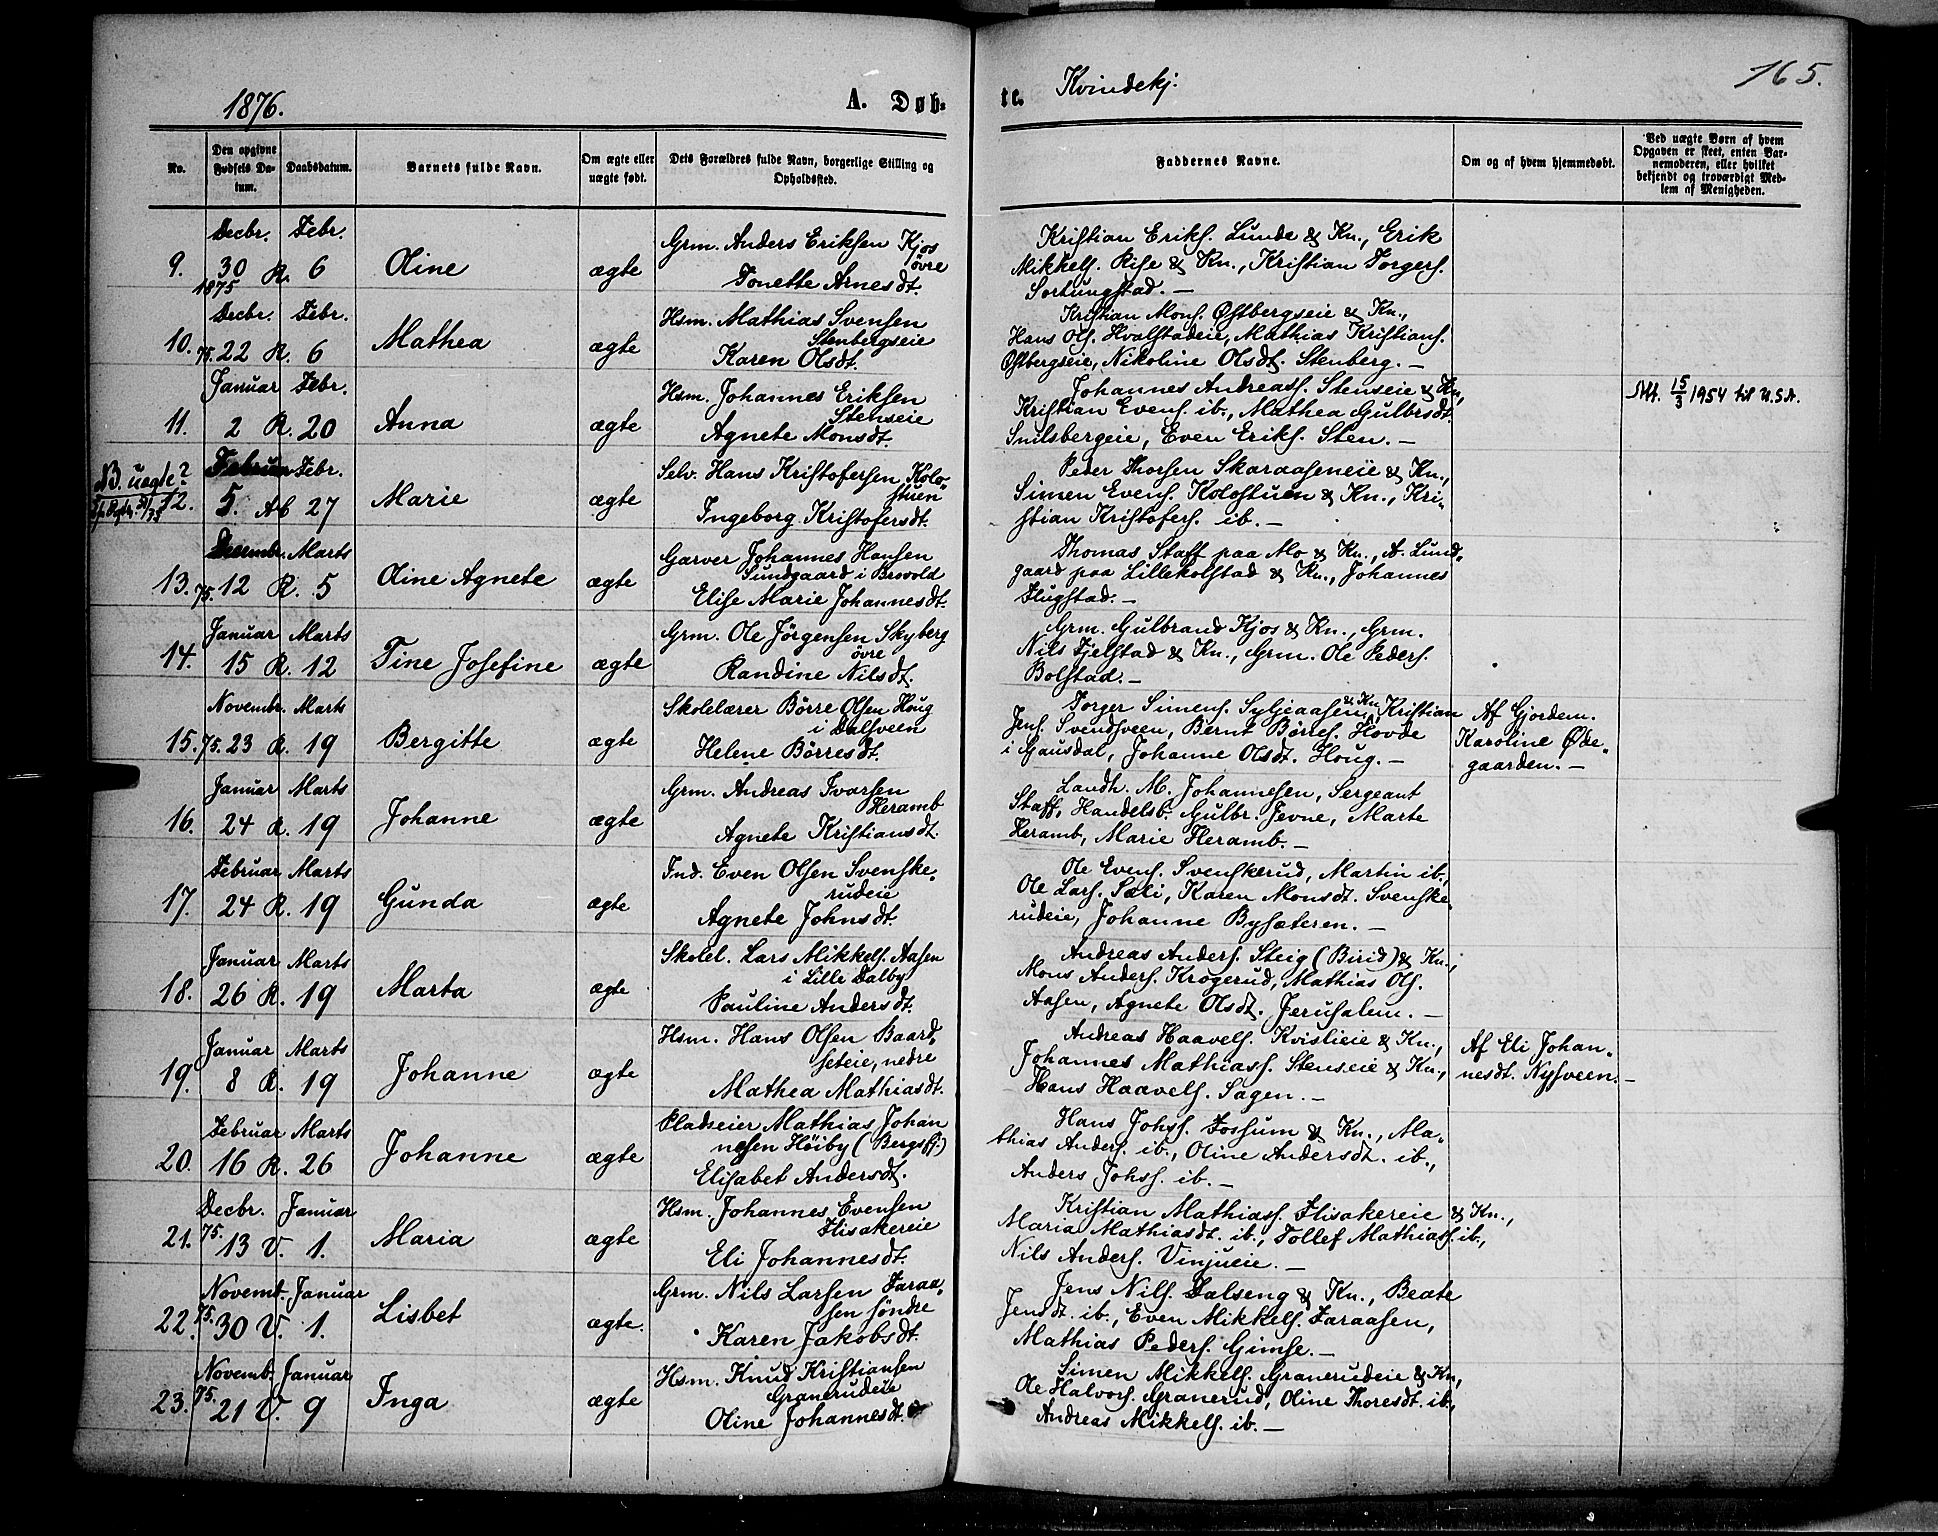 1876.
A. Døb-
te.
Kvindekj.
165.
No.
Den opgivne
Fødsels Da-
tum.
Daabsdatum.
Barnets fulde Navn.
Om ægte eller
uægte født.
Dets Forældres fulde Navn, borgerlige Stilling og
Opholdssted.
Faddernes Navne.
Om og af hvem hjemmedøbt.
Ved uægte Børn af hvem
Opgaven er skeet, enten Bar-
nemoderen, eller hvilket
bekjendt og troværdigt Med-
lem af Menigheden.
Decbr. Febr.
9. 30 R. 6 Oline ægte
1875
Grm. Anders Eriksen Kjos
øvre
Tonette Arnesdt.
Kristian Eriks. Lunde & Kn., Erik
Mikkels. Rise & Kn., Kristian Torgers.
Sortungstad. —
Decbr. Febr.
10. 75. 22 R. 6 Mathea ægte
Hsm. Mathias Svensen
Stenbergseie
Karen Olsdt.
Kristian Mons. Østbergseie & Kn.,
Hans Ols. Hvalstadeie, Mathias Kristians.
Østbergseie, Nikoline Olsdt. Stenberg. —
Januar Febr.
11. 2 R. 20 Anna ægte
Hsm. Johannes Eriksen
Stenseie
Agnete Monsdt.
Johannes Andreass. Stenseie & Kn.,
Kristian Evens. ib., Mathea Gulbrsdt.
Snilsbergeie, Even Eriks. Sten. —
Att. 15/3 1954 til U.S.A.
Februar Febr.
NB. uægte?
12. 5. Ab 27 Marie ægte
Selv. Hans Kristofersen Kolo-
stuen
Ingeborg Kristofersdt.
Peder Thorsen Skaraaseneie & Kn.,
Simen Evens. Kolostuen & Kn., Kri-
stian Kristofers. ib. —
Decembr. Marts
13. 75. 12 R. 5 Oline Agnete ægte
Garver Johannes Hansen
Lundgaard i Brovold
Elise Marie Johannesdt.
Thomas Staff paa Mo & Kn., A. Lund-
gaard paa Lillekolstad & Kn., Johannes
Flugstad. —
Januar Marts
14. 15 R. 12 Tine Josefine ægte
Grm. Ole Jörgensen Skyberg
övre
Randine Nilsdt.
Grm. Gulbrand Kjos & Kn., Grm.
Nils Fjelstad & Kn., Grm. Ole Peders.
Bolstad. —
Novembr. Marts
15. 75. 23 R. 19 Bergitte ægte
Skolelærer Börre Olsen Houg
i Dalsveen
Helene Börresdt.
Torger Simens. Syljeaasen & Kn., Kristian
Jens. Svendsveen, Bernt Börres. Hovde
i Gausdal, Johanne Olsdt. Houg. —
Af Gjordem.
Karoline Øde-
gaarden. —
Januar Marts
16. 24 R. 19 Johanne ægte
Grm. Andreas Ivarsen
Heramb
Agnete Kristiansdt.
Landh. M. Johannesen, Sergeant
Staff, Handelsb. Gulbr. Jevne, Marte
Heramb, Marie Heramb. —
Februar Marts
17. 24 R. 19 Gunda ægte
Ind. Even Olsen Svenske-
rudeie
Agnete Johnsdt.
Ole Evens. Svenskerud, Martin ib.,
Ole Lars. Sæli, Karen Monsdt. Svenske-
rudeie, Johanne Bysæteren. —
Januar Marts
18. 26 R. 19 Marta ægte
Skolel. Lars Mikkels. Aasen
i Lille Dalby
Pauline Andersdt.
Andreas Anders. Steig (Birid) & Kn.,
Mons Anders. Krogerud, Mathias Ols.
Aasen, Agnete Olsdt. Jerusalem. —
Januar Marts
19. 8 R. 19 Johanne ægte
Hsm. Hans Olsen Baard-
seteie, nedre
Mathea Mathiasdt.
Andreas Haavels. Kvislieie & Kn.,
Johannes Mathiass. Stenseie & Kn.,
Hans Haavels. Sagen. —
Af Eli Johan-
nesdt. Nysveen. —
Februar Marts
20. 16 R. 26 Johanne ægte
Pladseier Mathias Johan
nesen Höiby (Bergss.)
Elisabet Andersdt.
Hans Johss. Fossum & Kn., Ma-
thias Anders. ib., Oline Andersdt. ib.,
Anders Johss. ib. —
Decbr. Januar
21. 75. 13 V. 1. Maria ægte
Hsm. Johannes Evensen
Flisakereie
Eli Johannesdt.
Kristian Mathiass. Flisakereie & Kn.,
Maria Mathiasdt. ib., Tollef Mathiass. ib.,
Nils Anders. Vinjueie. —
Novemb. Januar
22. 75. 30 V. 1. Lisbet ægte.
Grm. Nils Larsen Faraa-
sen söndre
Karen Jakobsdt.
Jens Nils. Dalseng & Kn., Beate
Jensdt. ib., Even Mikkels. Faraasen,
Mathias Peders. Gimse. —
Novemb. Januar
23. 75. 21 V. 9 Inga ægte
Hsm. Knud Kristiansen
Granerudeie
Oline Johannesdt.
Simen Mikkels. Granerudeie & Kn.,
Ole Halvors. Granerud, Oline Thoresdt. ib.,
Andreas Mikkels. ib. —